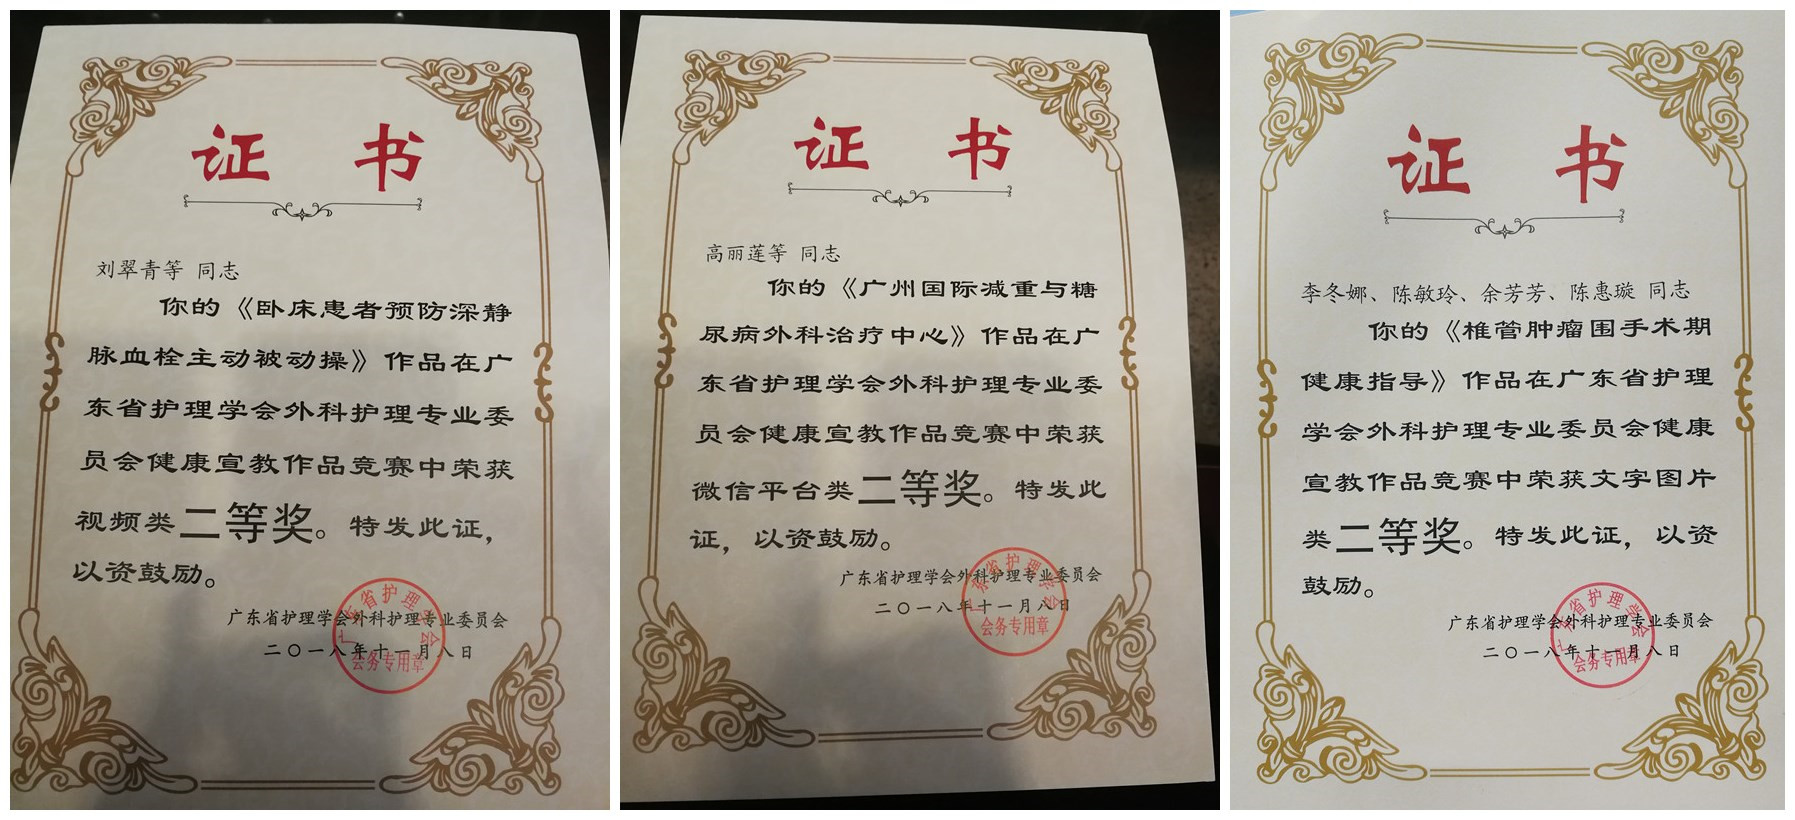 证 书
刘翠青等 同志
你的《卧床患者预防深静
脉血栓主动被动操》作品在广
东省护理学会外科护理专业委
员会健康宣教作品竞赛中荣获
视频类二等奖。特发此证，
以资鼓励。
广东省护理学会外科护理专业委员会
二〇一八年十一月八日
广东省护理学会
会务专用章
证 书
高丽莲等 同志
你的《广州国际减重与糖
尿病外科治疗中心》作品在广
东省护理学会外科护理专业委
员会健康宣教作品竞赛中荣获
微信平台类二等奖。特发此
证，以资鼓励。
广东省护理学会外科护理专业委员会
二〇一八年十一月八日
广东省护理学会
会务专用章
证 书
李冬娜、陈敏玲、余芳芳、陈惠璇 同志
你的《椎管肿瘤围手术期
健康指导》作品在广东省护理
学会外科护理专业委员会健康
宣教作品竞赛中荣获文字图片
类二等奖。特发此证，以资
鼓励。
广东省护理学会外科护理专业委员会
二〇一八年十一月八日
广东省护理学会
会务专用章